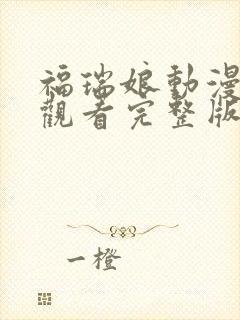 福瑞娘動漫
觀看完整版
一橙